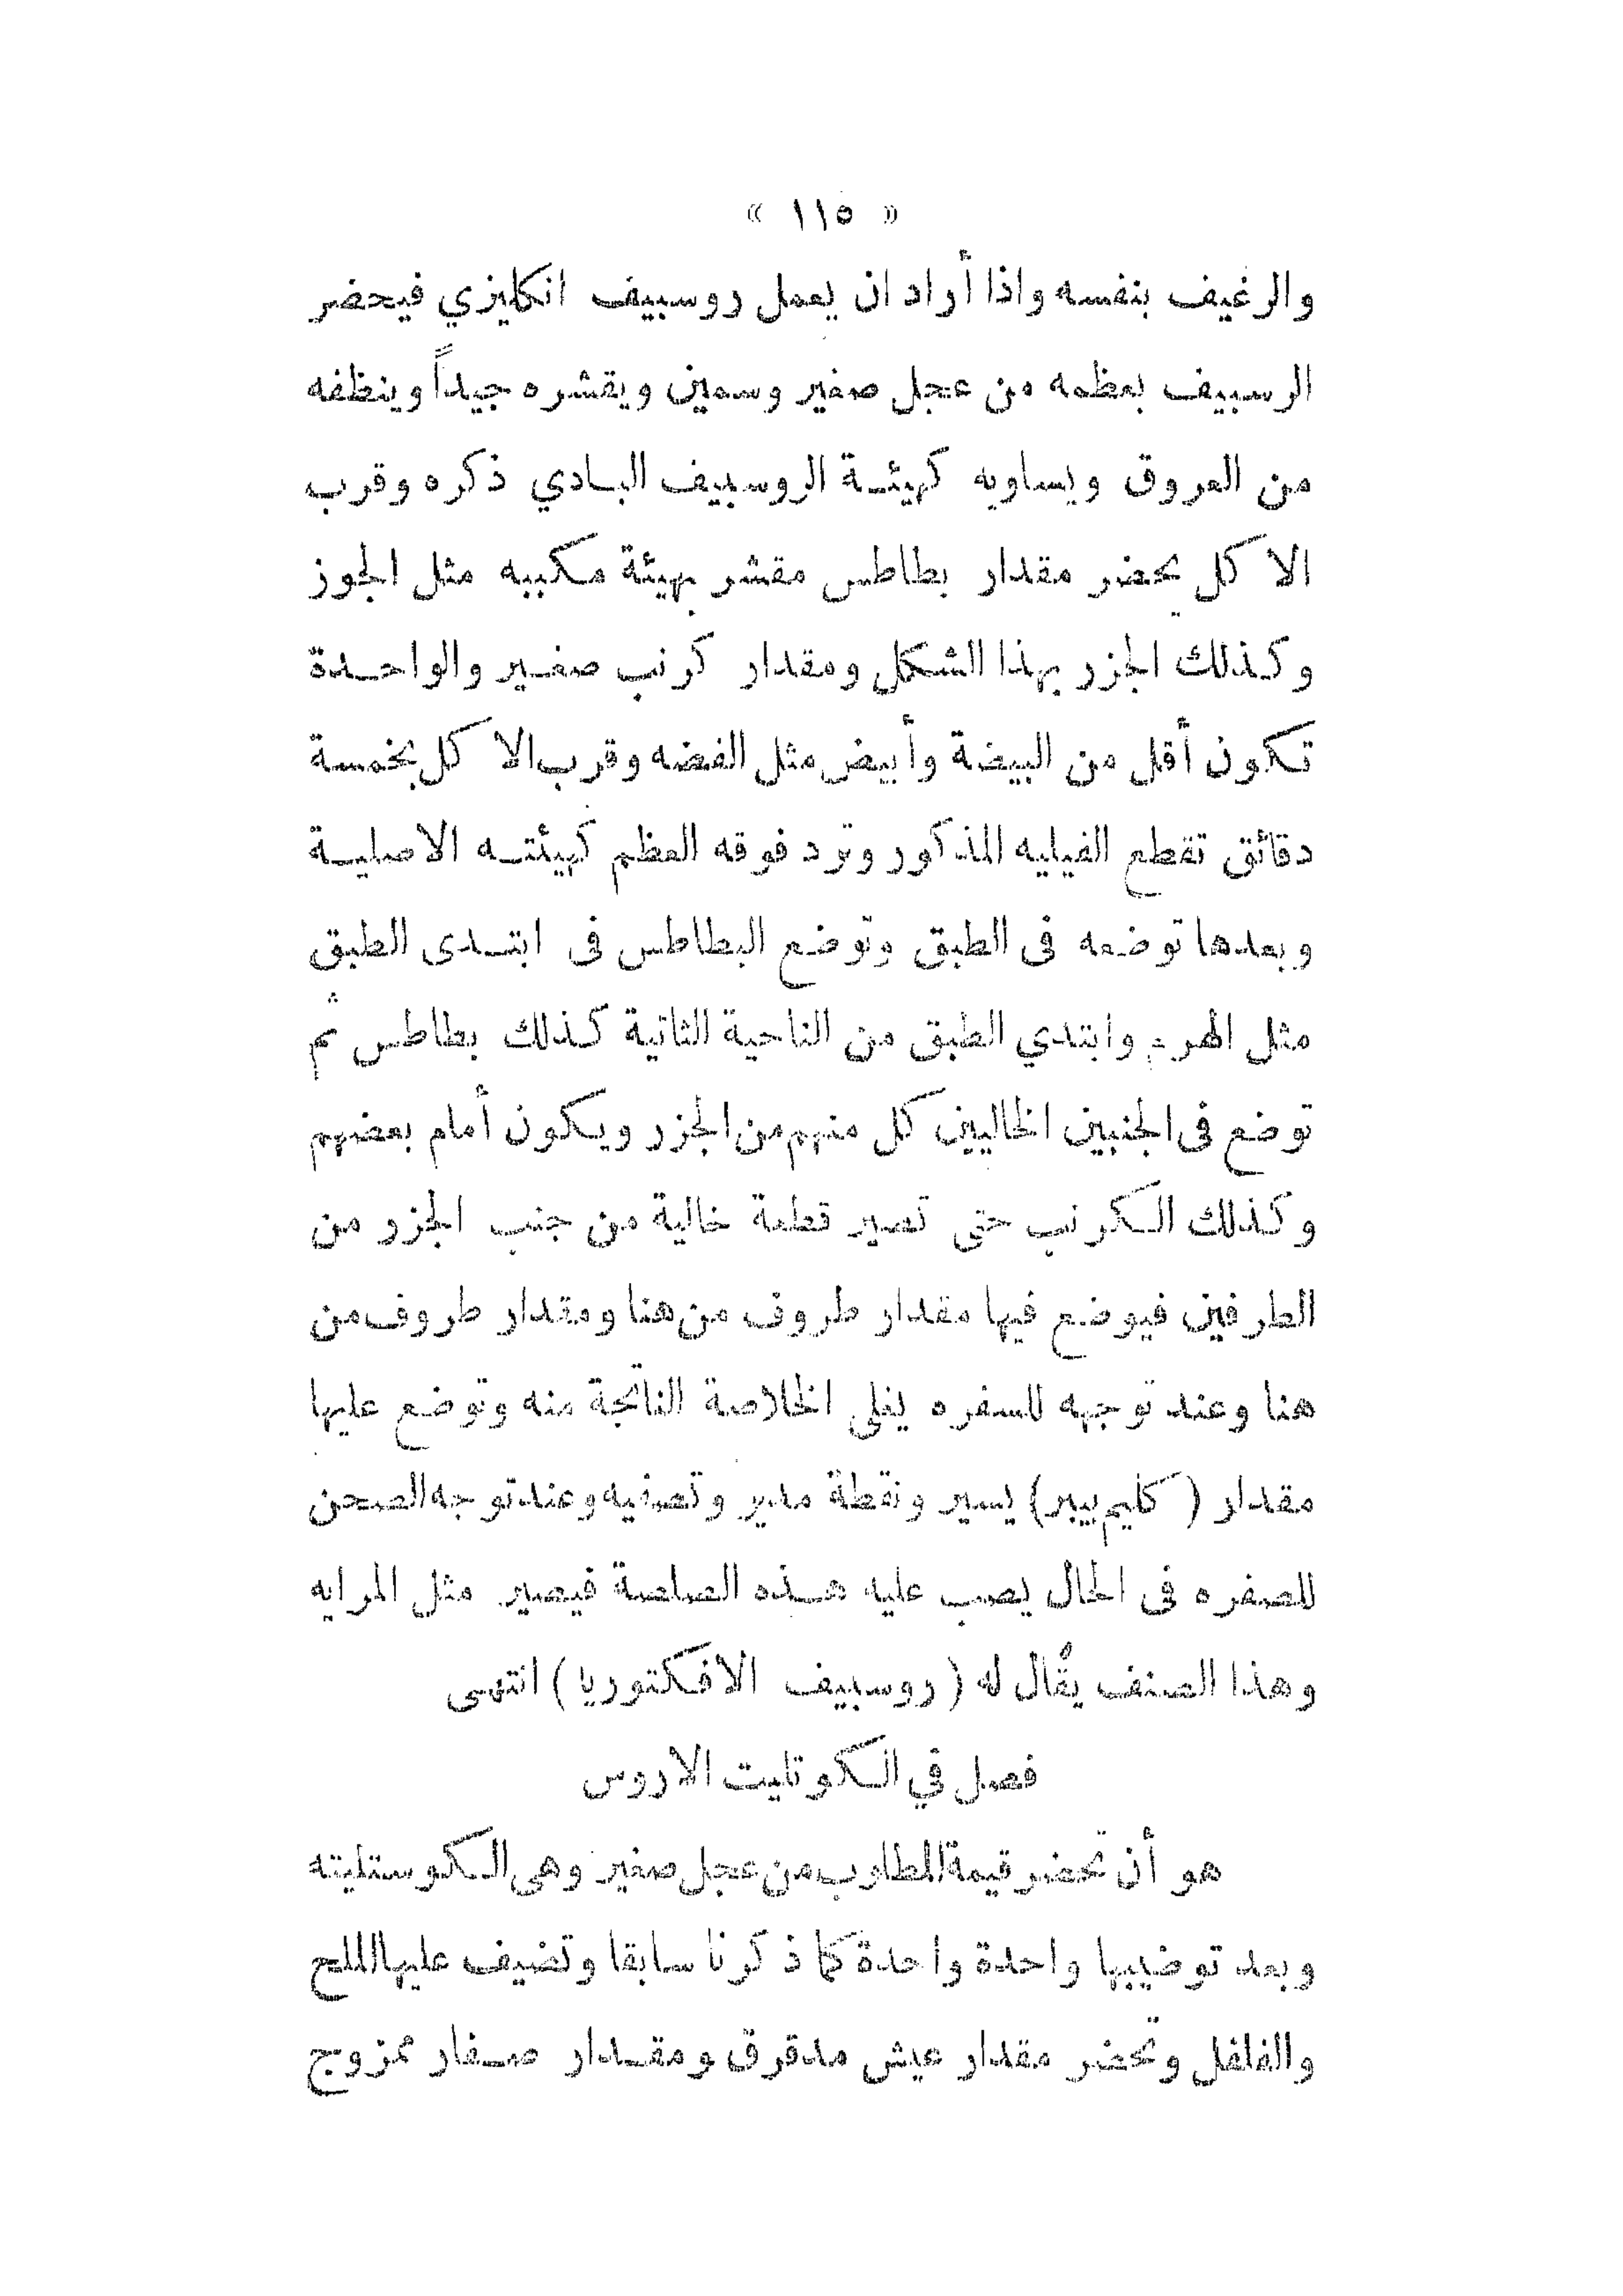 « ١١٥ »
والرغيف بنفسه واذا أراد ان يعمل روسبيف انكليزي فيحضر
الرسبيف بعظمه من عجل صغير وسمين ويقشره جيداً وينظفه
من العروق ويساويه كهيئة الروسبيف البادي ذكره وقرب
الاكل يحضر مقدار بطاطس مقشر بهيئة مكببه مثل الجوز
وكذلك الجزر بهذا الشكل ومقدار كرنب صغير والواحدة
تكون أقل من البيضة وأبيض مثل الفضه وقرب الاكل بخمسة
دقائق تقطع الفيليه المذكور وترد فوقه العظم كهيئته الاصلية
وبعدها توضعه فى الطبق وتوضع البطاطس فى ابتدى الطبق
مثل الهرم وابتدي الطبق من الناحية الثانية كذلك بطاطس ثم
توضع فى الجنبين الخاليين كل منهم من الجزر ويكون أمام بعضهم
وكذلك الكرنب حتى تصير قطعة خالية من جنب الجزر من
الطرفين فيوضع فيها مقدار طروف من هنا ومقدار طروف من
هنا وعند توجهه للسفره يغلى الخلاصة الناتجة منه وتوضع عليها
مقدار (كليم بيبر) يسير ونقطة مدير وتصفيه وعند توجه الصحن
للصفره فى الحال يصب عليه هذه الصلصة فيصير مثل المرايه
وهذا الصنف يقال له (روسبيف الافكتوريا) انتهى
فصل في الكوتليت الاروس
هو أن تحضر قيمة المطلوب من عجل صغير وهى الكوستليته
وبعد توضيبها واحدة واحدة كما ذكرنا سابقا وتضيف عليها الملح
والفلفل وتحضر مقدار عيش مدقرق ومقدار صفار ممزوج